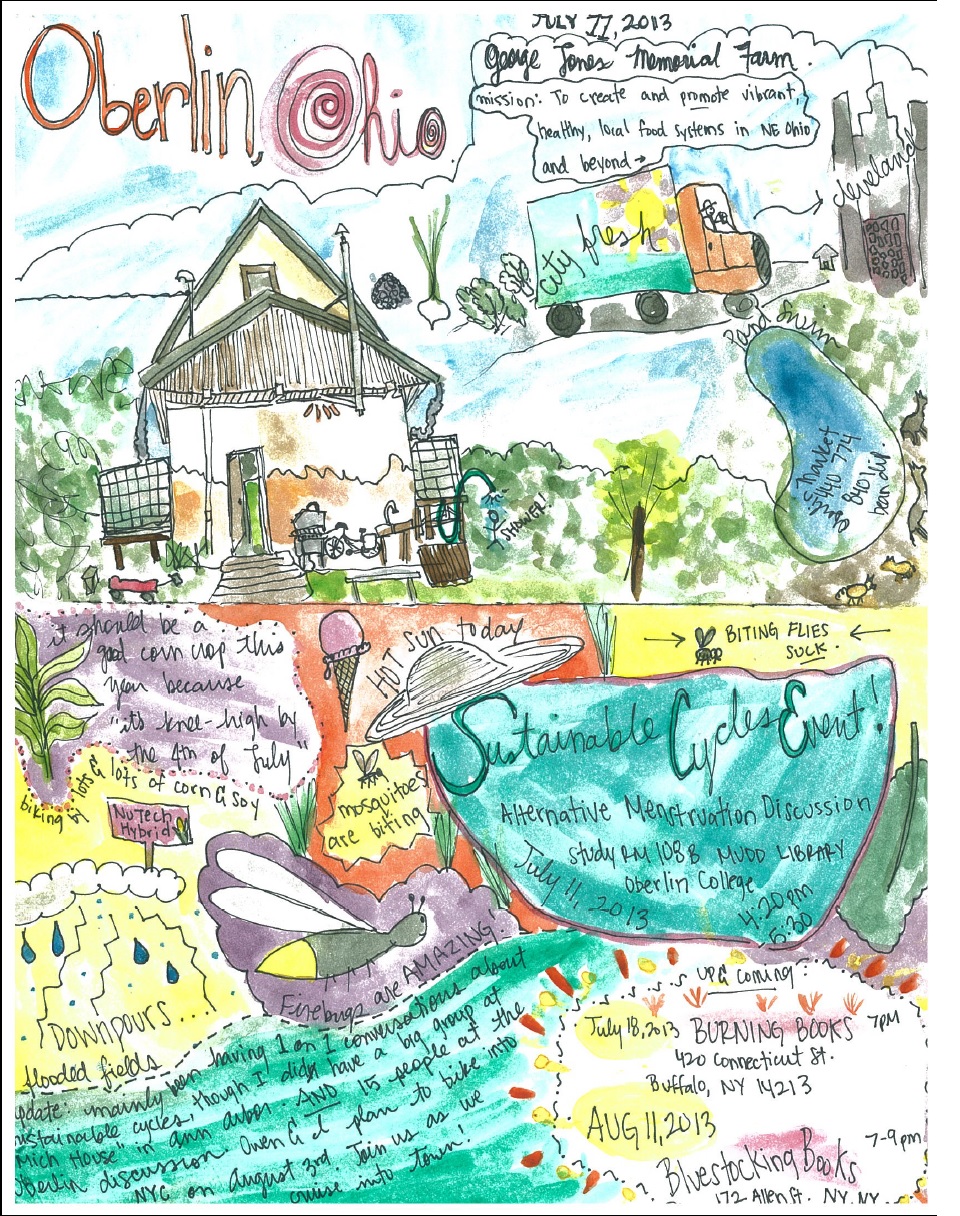 Oberlin, Ohio.
JULY 11, 2013
George Jones Memorial Farm.
mission: To create and promote vibrant,
healthy, local food systems in NE Ohio
and beyond →
city fresh
cleveland
pond swim
market
440 774
SHOWER!
it should be a
good corn crop this
year because
"it's knee-high by
the 4th of July"
biking by lots & lots of corn & soy
NuTech
Hybrid
HOT sun today
mosquitoes
are biting
→ BITING FLIES ←
SUCK.
Sustainable Cycles Event!
Alternative Menstruation Discussion
study RM 108B MUDD LIBRARY
Oberlin College
July 11, 2013
4:20 pm
5:30
DOWNPOURS...
flooded fields
Firebugs are AMAZING!
update: mainly been having 1 on 1 conversations about
sustainable cycles, though I did have a big group at
"Mich House" in ann arbor AND 15 people at the
Oberlin discussion. Owen & I plan to bike into
NYC on August 3rd. Join us as we
cruise into town!
up & coming:
July 18, 2013 BURNING BOOKS 7PM
420 Connecticut St.
Buffalo, NY 14213
AUG 11, 2013
7-9pm
Bluestocking Books
172 Allen St. NY, NY